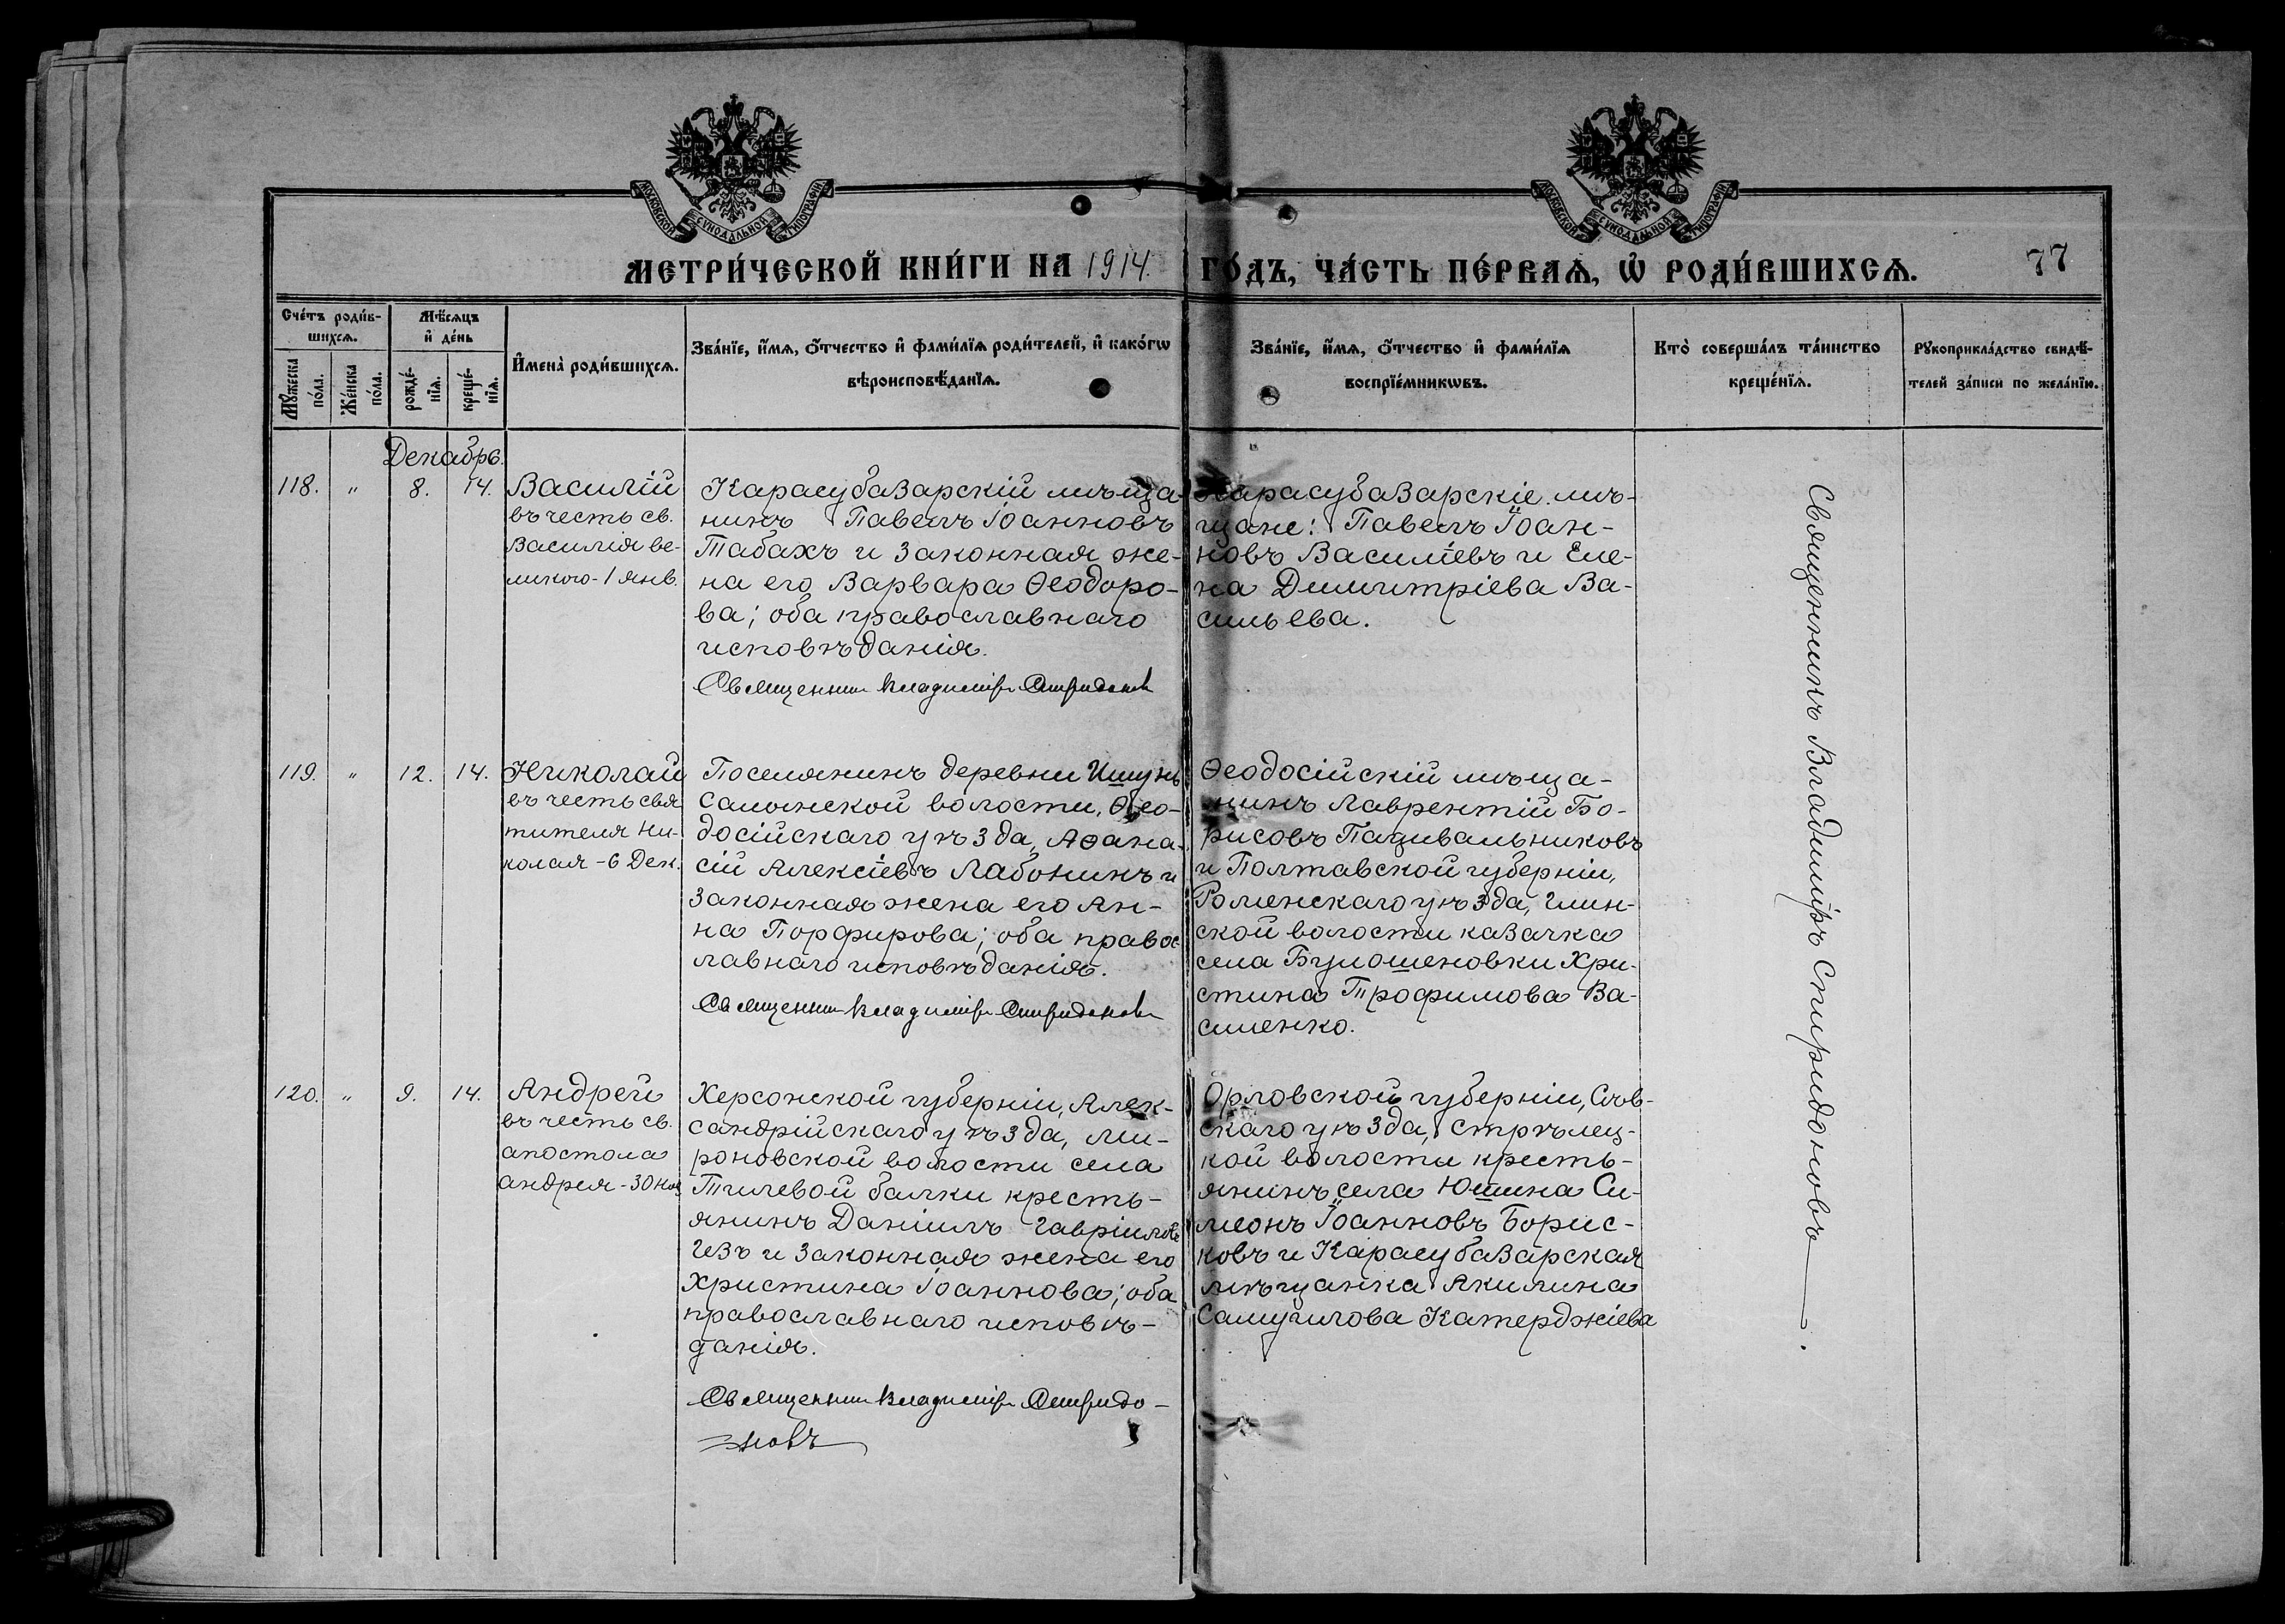 МОСКОВСКОЙ СѴНОДАЛЬНОЙ ТИПОГРАФІИ
МОСКОВСКОЙ СѴНОДАЛЬНОЙ ТИПОГРАФІИ
МЕТРИ́ЧЕСКОЙ КНИ́ГИ НА 1914. ГО́ДЪ, ЧА́СТЬ ПЕ́РВАѦ, Ѡ РОДИ́ВШИХСѦ. 77
Сче́тъ роди́в-
шихсѧ.
Мꙋжеска по́ла.
Же́нска по́ла.
Мѣ́сѧцъ
и҆ де́нь
рожде́-
нїѧ.
креще́-
нїѧ.
И҆мена̀ роди́вшихсѧ.
Зва́нїе, и҆́мѧ, ѻ҆́тчество и҆ фами́лїѧ роди́телей, и҆ како́гѡ
вѣроисповѣ́данїѧ.
Зва́нїе, и҆́мѧ, ѻ҆́тчество и҆ фами́лїѧ
воспрїе́мникѡвъ.
Кто̀ соверша́лъ та́инство
креще́нїѧ.
Рꙋкоприкла́дство свидѣ́-
телей за́писи по жела́нїю.
Декабрь.
118. " 8. 14.
Василій
въ честь св.
Василія ве-
ликого - 1 янв.
Карасубазарскій мѣща-
нинъ Павелъ Іоанновъ
Табахъ и законная же-
на его Варвара Ѳеодоро-
ва; оба православнаго
исповѣданія.
Священникъ Владиміръ Спиридоновъ
Карасубазарскіе мѣ-
щане: Павелъ Іоан-
новъ Василіевъ и Еле-
на Димитріева Ва-
сильева.
119. " 12. 14.
Николай
въ честь свя
тителя Ни-
колая - 6 Дек.
Поселянинъ деревни Ишунь
Салынской волости, Ѳео-
досійскаго уѣзда, Аѳана-
сій Алексіевъ Лабонинъ и
законная жена его Ан-
на Порфирова; оба правос
лавнаго исповѣданія.
Священникъ Владиміръ Спиридоновъ
Ѳеодосійскій мѣща-
нинъ Лаврентій Бо-
рисовъ Пацивальниковъ
и Полтавской губерніи,
Роменскаго уѣзда, Глин-
ской волости казачка
села Хри-
стина Трофимова Ва-
силенко.
120. " 9. 14.
Андрей
въ честь св.
апостола
андрея - 30 Ноя
Херсонской губерніи, Алек-
сандрійскаго уѣзда, Ми-
роновской волости села
балки кресть-
янинъ Даніилъ Гавріиловъ
и законная жена его
Христина Іоаннова; оба
православнаго исповѣ-
данія.
Священникъ Владиміръ Спиридо-
новъ
Орловской губерніи,
скаго уѣзда, Стрѣлец-
кой волости кресть-
янинъ села Юшина Си-
меонъ Іоанновъ Борис-
ковъ и Карасубазарская
мѣщанка Акилина
Самуилова Катерджіева
Священникъ Владиміръ Спиридоновъ